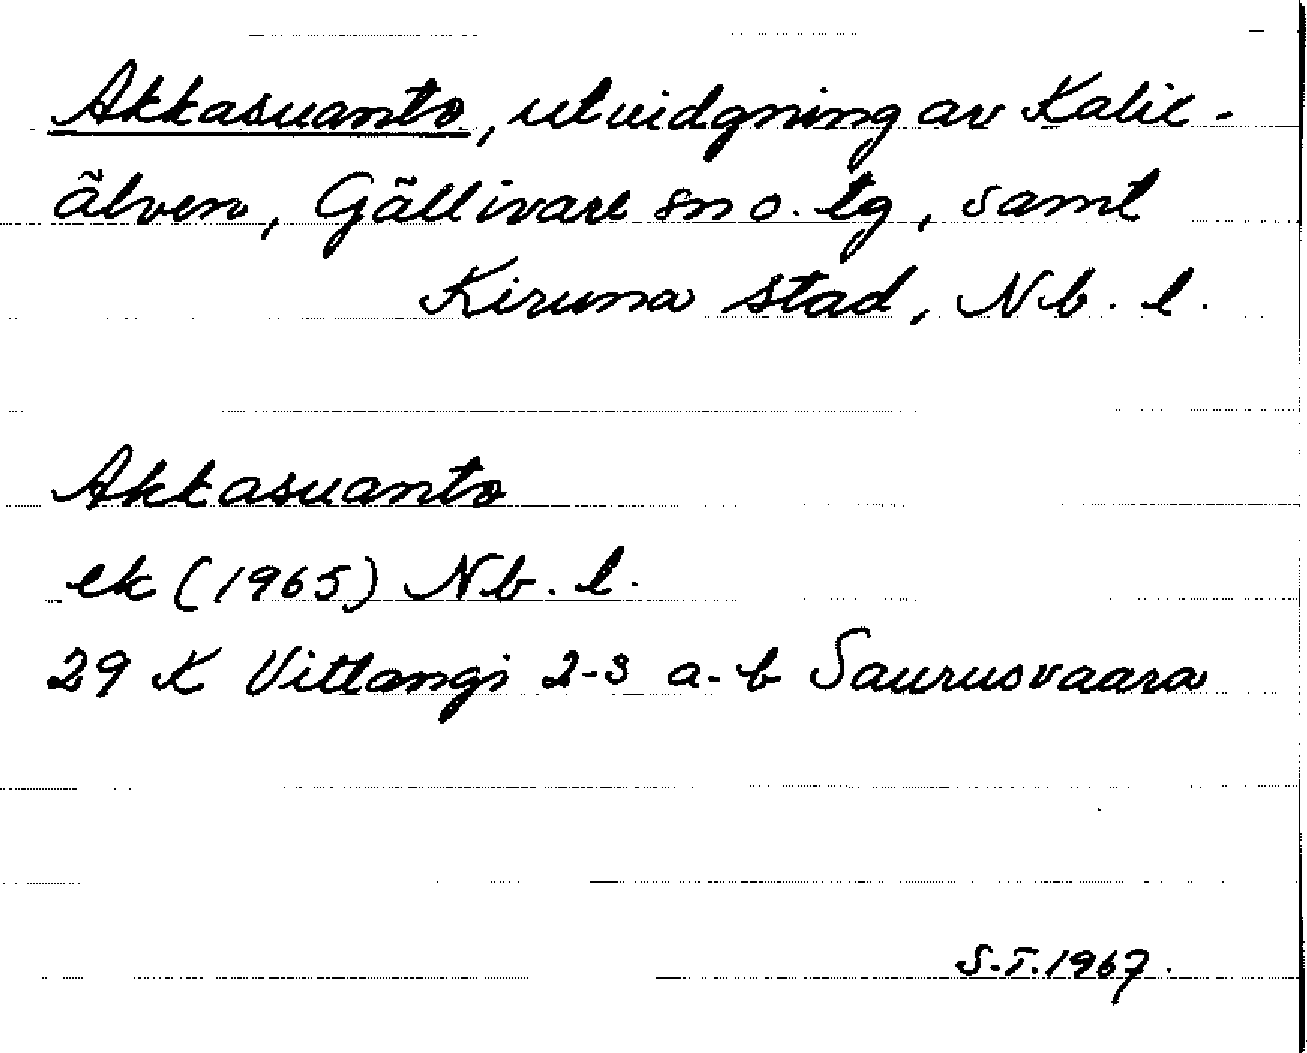 Akkasuanto, utvidgning av Kalix-
älven, Gällivare sn o. tg, samt
Kiruna stad, Nb. l.
Akkasuanto
ek (1965) Nb. l.
29 K Vittangi 2-3 a-b Saurusvaara
S.T. 1967.